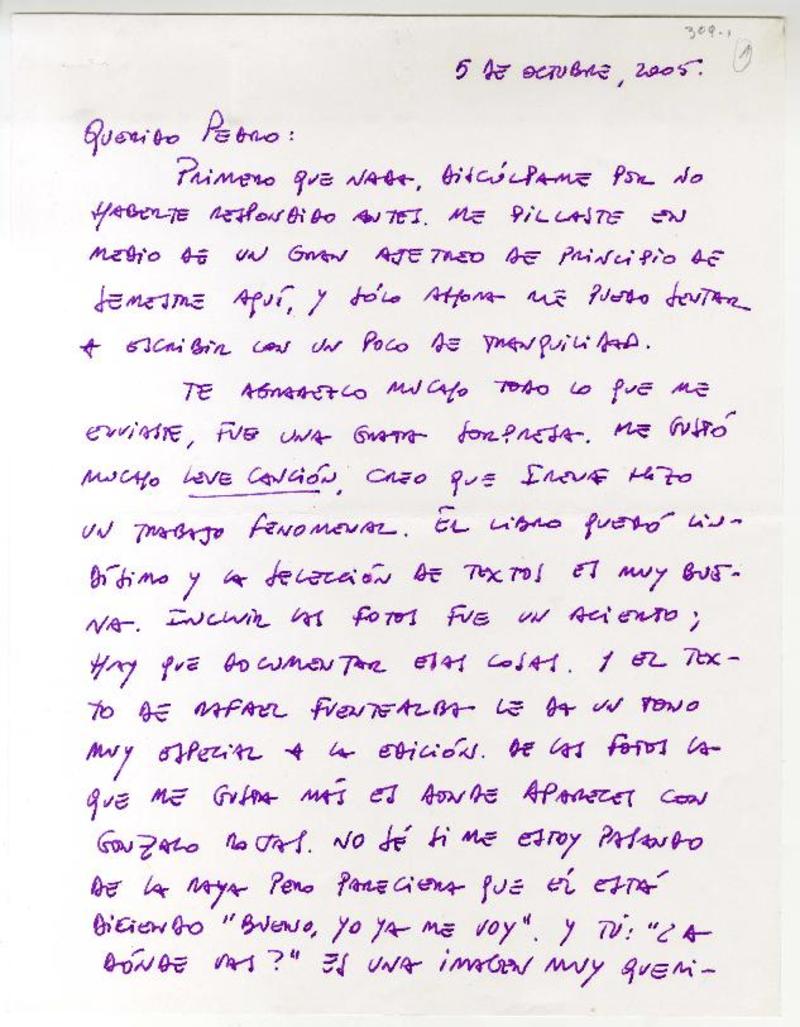 309-1
1
5 DE OCTUBRE, 2005.
QUERIDO PEDRO:
PRIMERO QUE NADA, DISCÚLPAME POR NO
HABERTE RESPONDIDO ANTES. ME PILLASTE EN
MEDIO DE UN GRAN AJETREO DE PRINCIPIO DE
SEMESTRE AQUÍ, Y SÓLO AHORA ME PUEDO SENTAR
A ESCRIBIR CON UN POCO DE TRANQUILIDAD.
TE AGRADEZCO MUCHO TODO LO QUE ME
ENVIASTE, FUE UNA GRATA SORPRESA. ME GUSTÓ
MUCHO LEVE CANCIÓN, CREO QUE IRENE HIZO
UN TRABAJO FENOMENAL. EL LIBRO QUEDÓ LIN-
DÍSIMO Y LA SELECCIÓN DE TEXTOS ES MUY BUE-
NA. INCLUIR LAS FOTOS FUE UN ACIERTO;
HAY QUE DOCUMENTAR ESAS COSAS. Y EL TEX-
TO DE RAFAEL FUENTEALBA LE DA UN TONO
MUY ESPECIAL A LA EDICIÓN. DE LAS FOTOS LA
QUE ME GUSTA MÁS ES DONDE APARECES CON
GONZALO ROJAS. NO SÉ SI ME ESTOY PASANDO
DE LA RAYA PERO PARECIERA QUE ÉL ESTÁ
DICIENDO "BUENO, YO YA ME VOY". Y TÚ: "¿A
DÓNDE VAS?" ES UNA IMAGEN MUY QUERI-